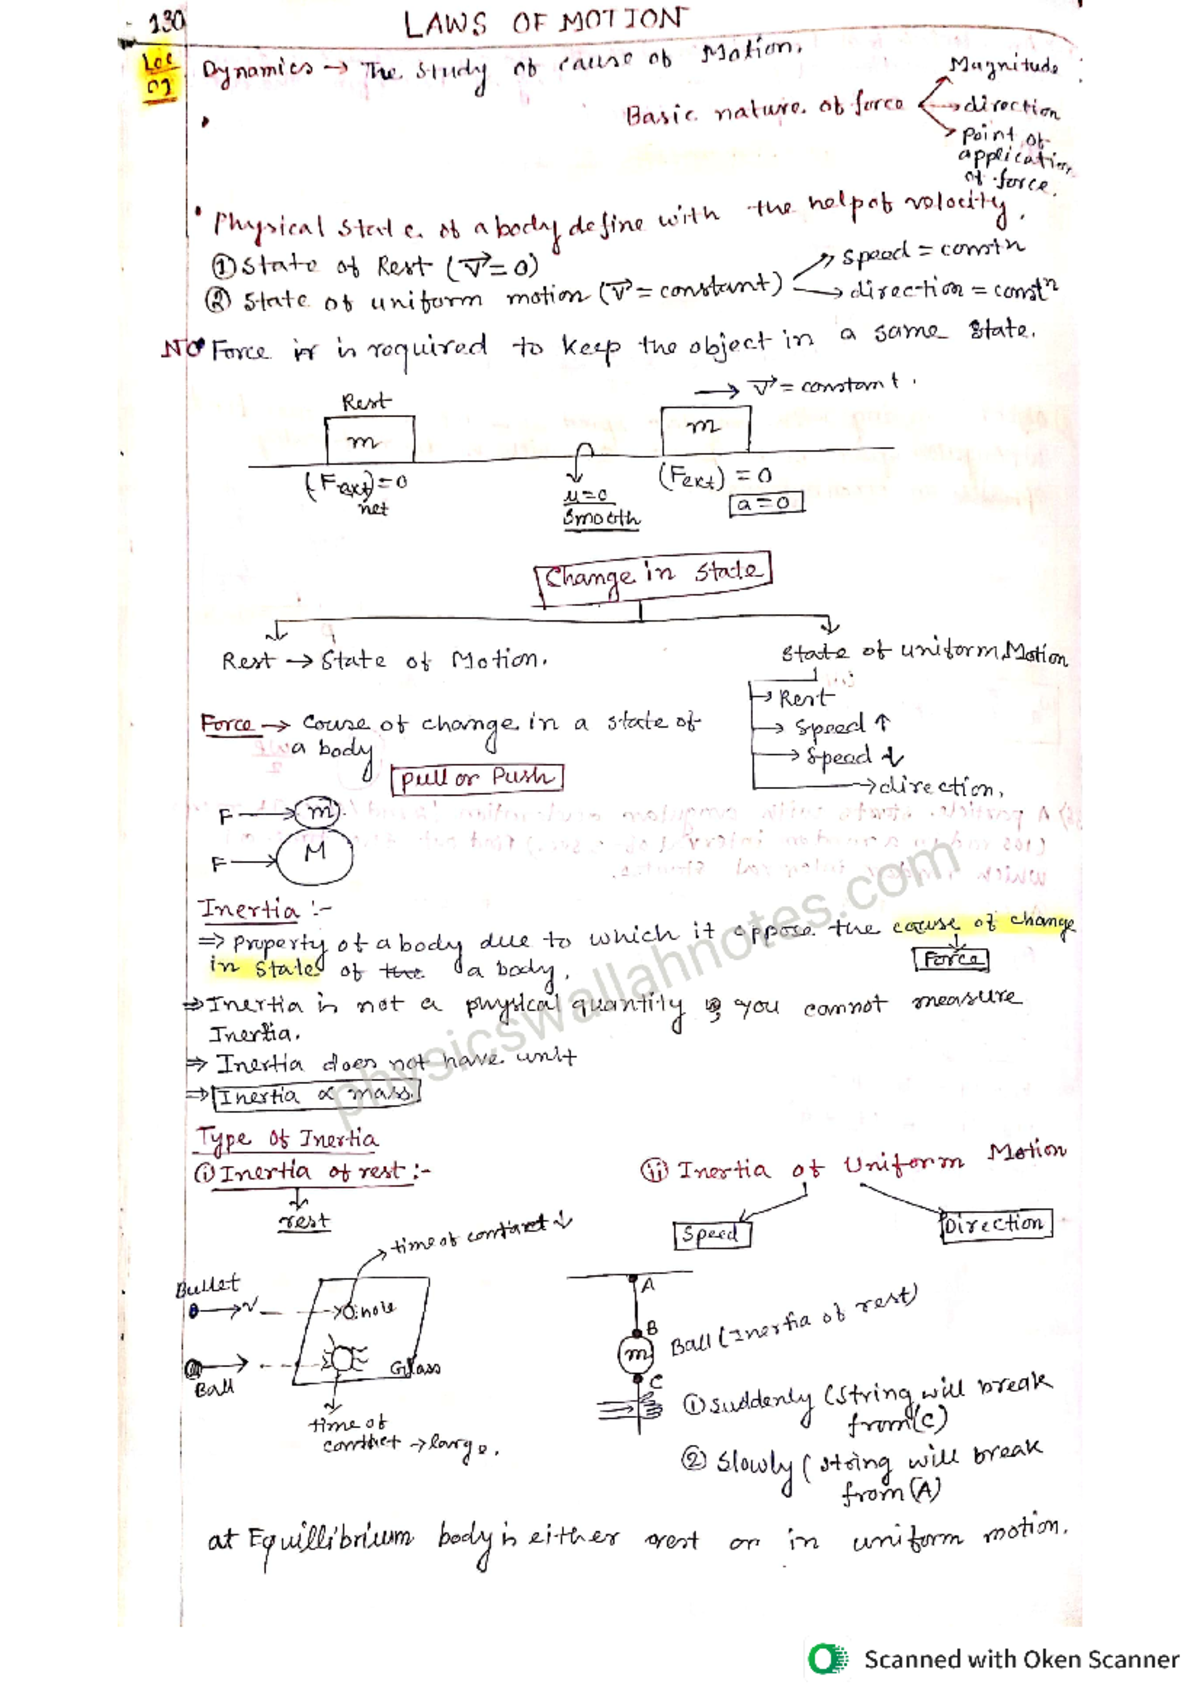 130
LAWS OF MOTION
Lec
01
Dynamics → The study of cause of Motion.
Basic nature of force
Magnitude
direction
point of
application
of force.
Physical state of a body define with the help of velocity.
① State of Rest (V⃗ = 0)
② State of uniform motion (V⃗ = constant)
speed = constn
direction = constn
NO Force is is required to keep the object in a same state.
Rest
m
(Fext) = 0
net
μ = 0
Smooth
→ V⃗ = constant.
m
(Fext) = 0
a = 0
Change in State
Rest → State of Motion.
State of uniform Motion
→ Rest
→ Speed ↑
→ Speed ↓
→ direction.
Force → Couse of change in a state of
a body
Pull or Push
F → m
F → M
Inertia :-
⇒ Property of a body due to which it oppose the couse of change
in State of the a body.
Force
⇒ Inertia is not a physical quantity you cannot measure
Inertia.
⇒ Inertia does not have unit
⇒ Inertia ∝ mass.
physicswallahnotes.com
Type of Inertia
(i) Inertia of rest :-
rest
(ii) Inertia of Uniform Motion
Speed
Direction
time of contact ↓
Bullet
V
hole
Ball
Glass
time of
contact → large.
A
B
m
C
Ball (Inertia of rest)
① Suddenly (String will break
from (C)
② Slowly (String will break
from (A)
at Equillibrium body is either rest or in uniform motion.
Scanned with Oken Scanner